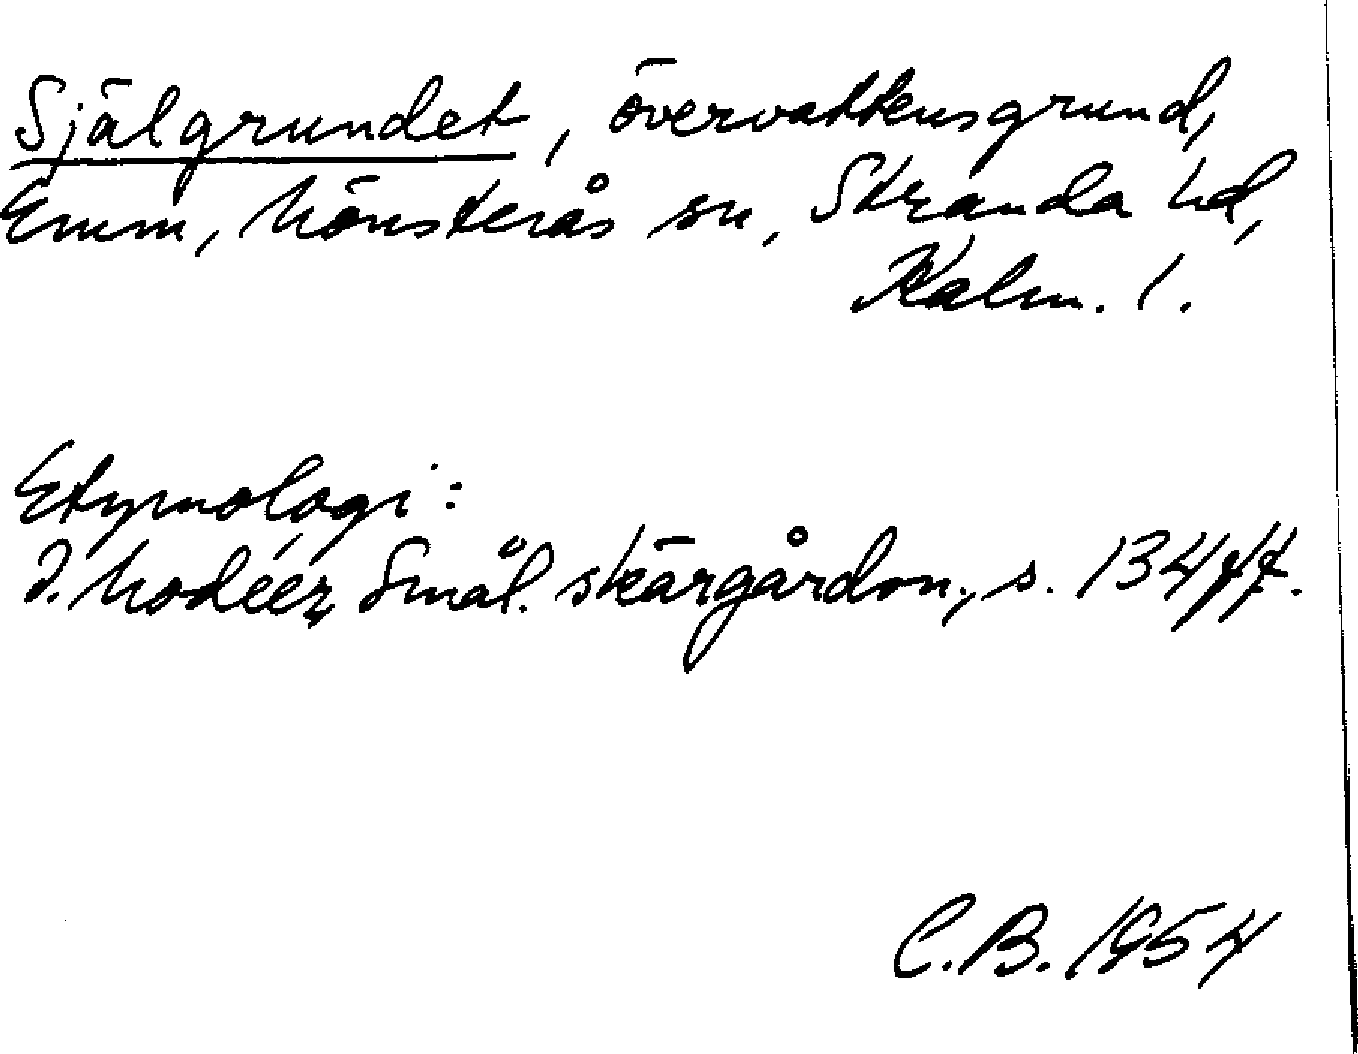 Själgrundet, övervattensgrund,
Emm, Mönsterås sn, Stranda hd,
Kalm. l.
Etymologi:
I. Modéer, Smål. skärgårdsn., s. 134 ff.
C.B. 1954